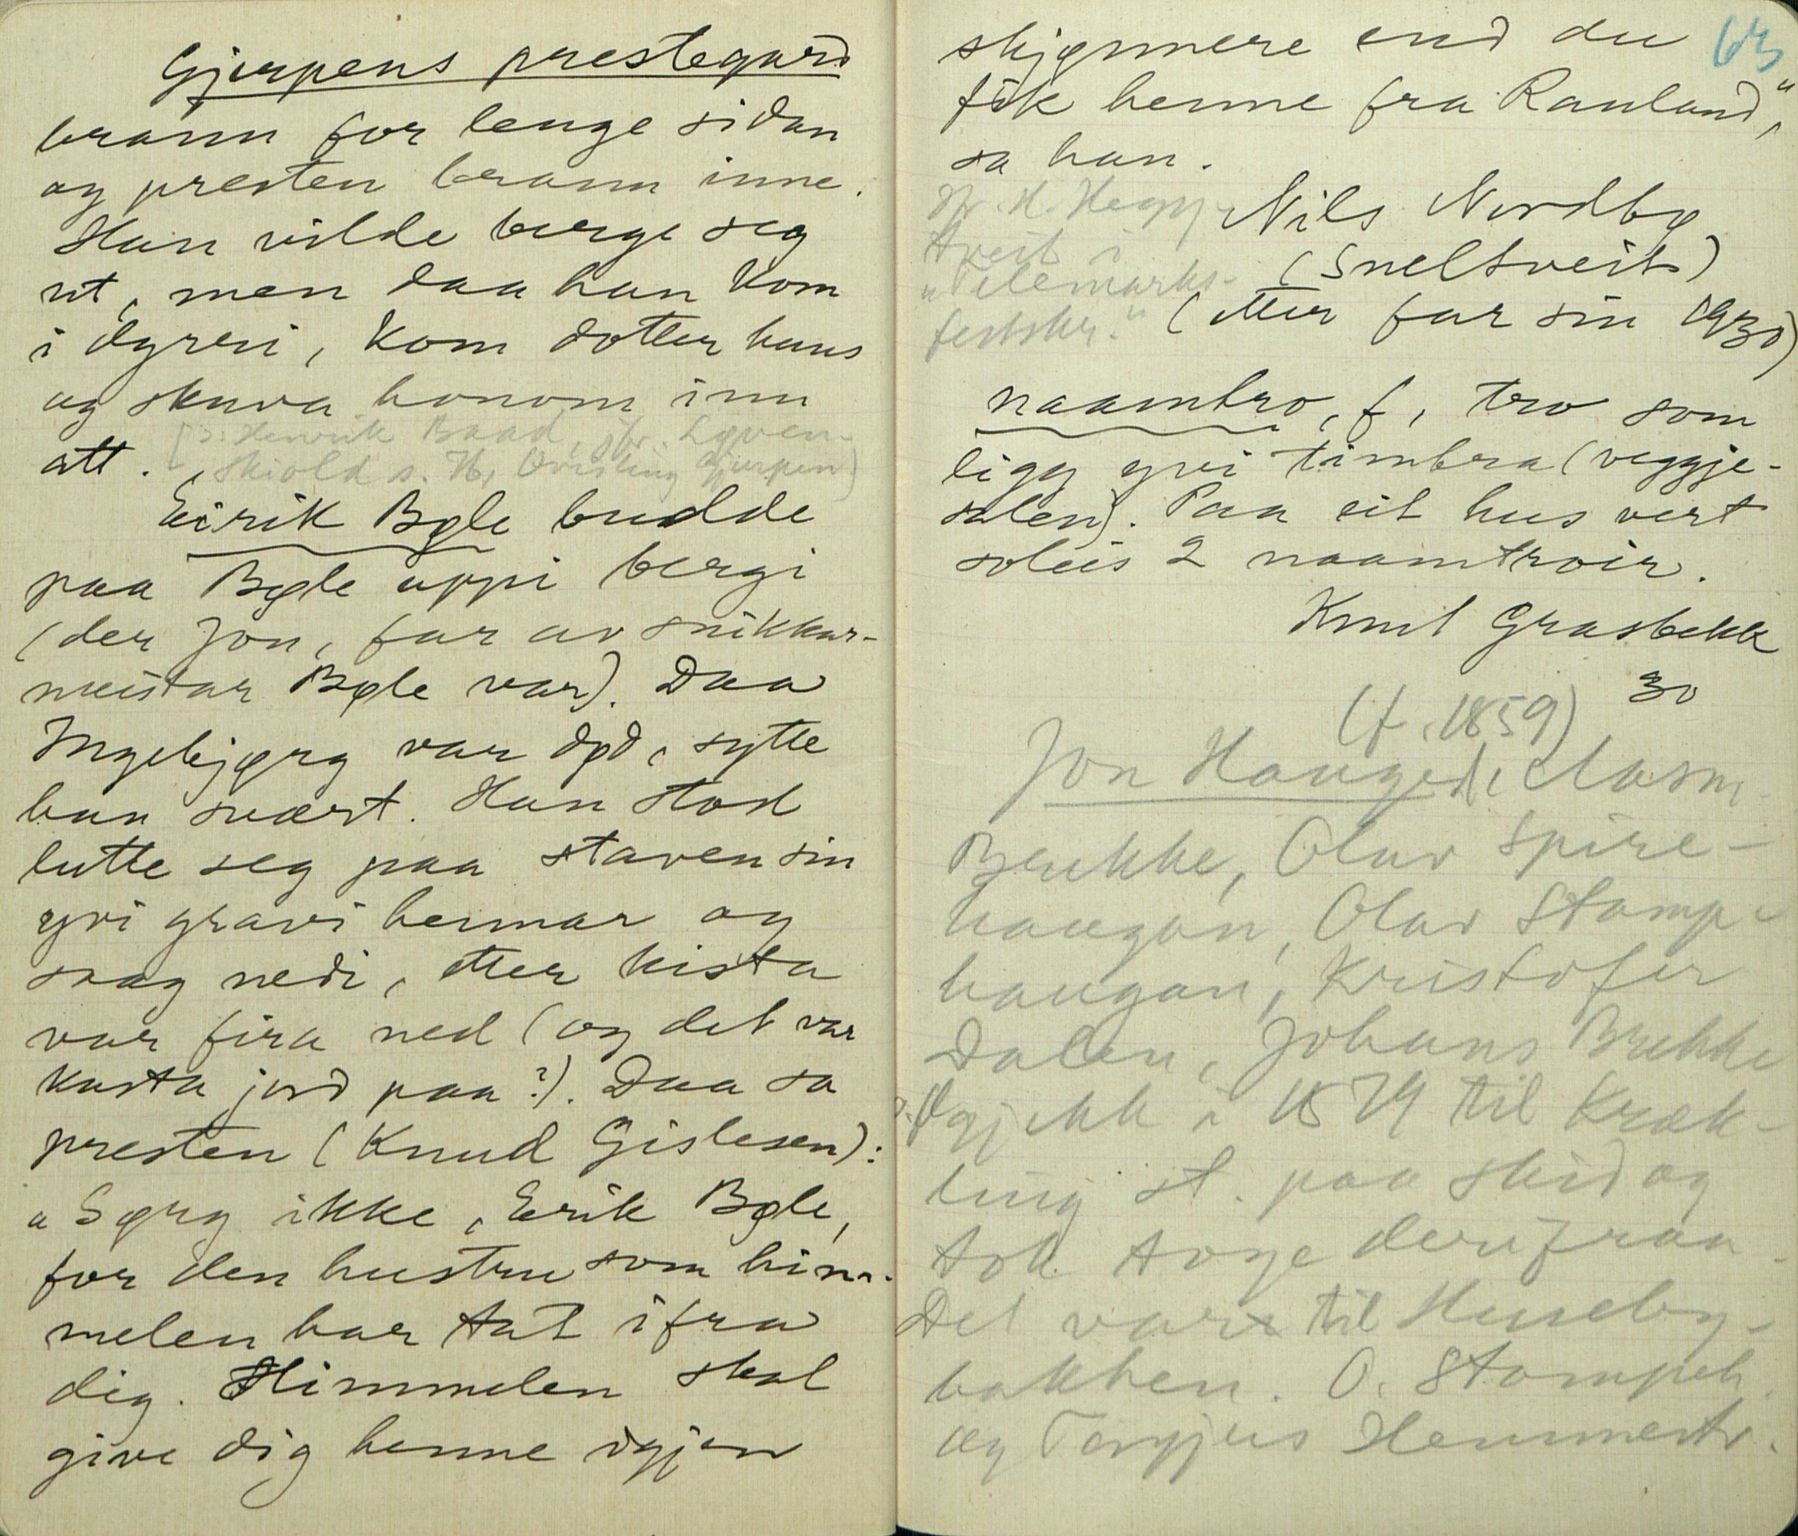 Gjerpens prestegard
brann for lenge sidan
og presten brann inne.
Han vilde berge seg
ut, men daa han kom
i dyrri, kom dotter hans
og skuva honom inn
att. [ɔ: Henrik Baad, jfr. Løven-
skiold s. H, Øvrsling Gjerpen)
Eirik Bøle budde
paa Bøle uppi bergi
(der Jon, far av snikkar-
meistar Bøle var). Daa
Ingebjørg var død, sytte
han svært. Han stod
lutte seg paa staven sin
yvi gravi hennar og
saag nedi, etter kista
var fira ned (og det var
kasta jord paa?). Daa sa
presten (Knud Gislesen):
"Sørg ikke, Erik Bøle,
for den hustru som him-
melen har tat ifra
dig. Himmelen skal
give dig henne igjen
skjønnere end du
fik henne fra Rauland,"
sa han.
Nils Nordbø
(Sneltveit)
(etter far sin 1930)
Sjr. H. Hegg
tveit i
"Telemarks-
festskr."
naamtro, f, tro som
ligg yvi timbra (veggje-
solen). Paa eit hus vert
soleis 2 naamtroir.
Knut Grasbekk
30
(f. 1859)
Jon Hauged, Aasm.
Brekke, Olav Spire-
haugan, Olav Stamp-
haugan, Kristofer
Dalen, Johans Brekke
gjekk i 1879 til Kræk-
ling st. paa skid og
tok toge derifraa.
Det var til Huseby-
bakken. O. Stampeh.
og Torgjus Hemmestv.